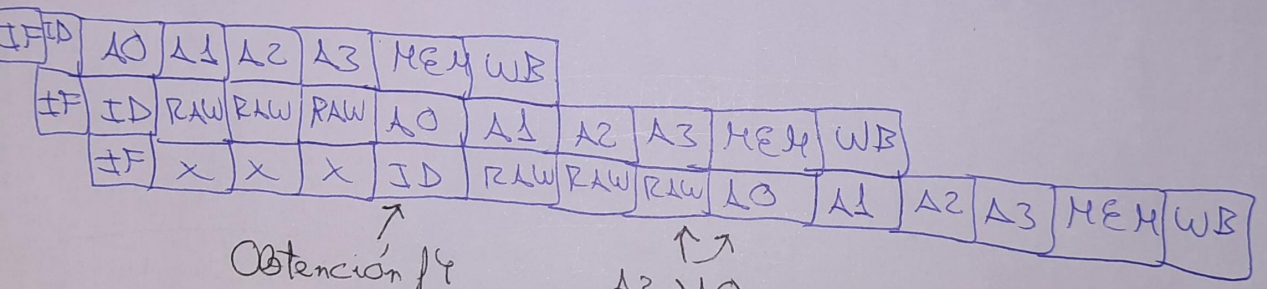 IF ID A0 A1 A2 A3 MEM WB
IF ID RAW RAW RAW A0 A1 A2 A3 MEM WB
IF X X X ID RAW RAW RAW A0 A1 A2 A3 MEM WB
Obtención f4